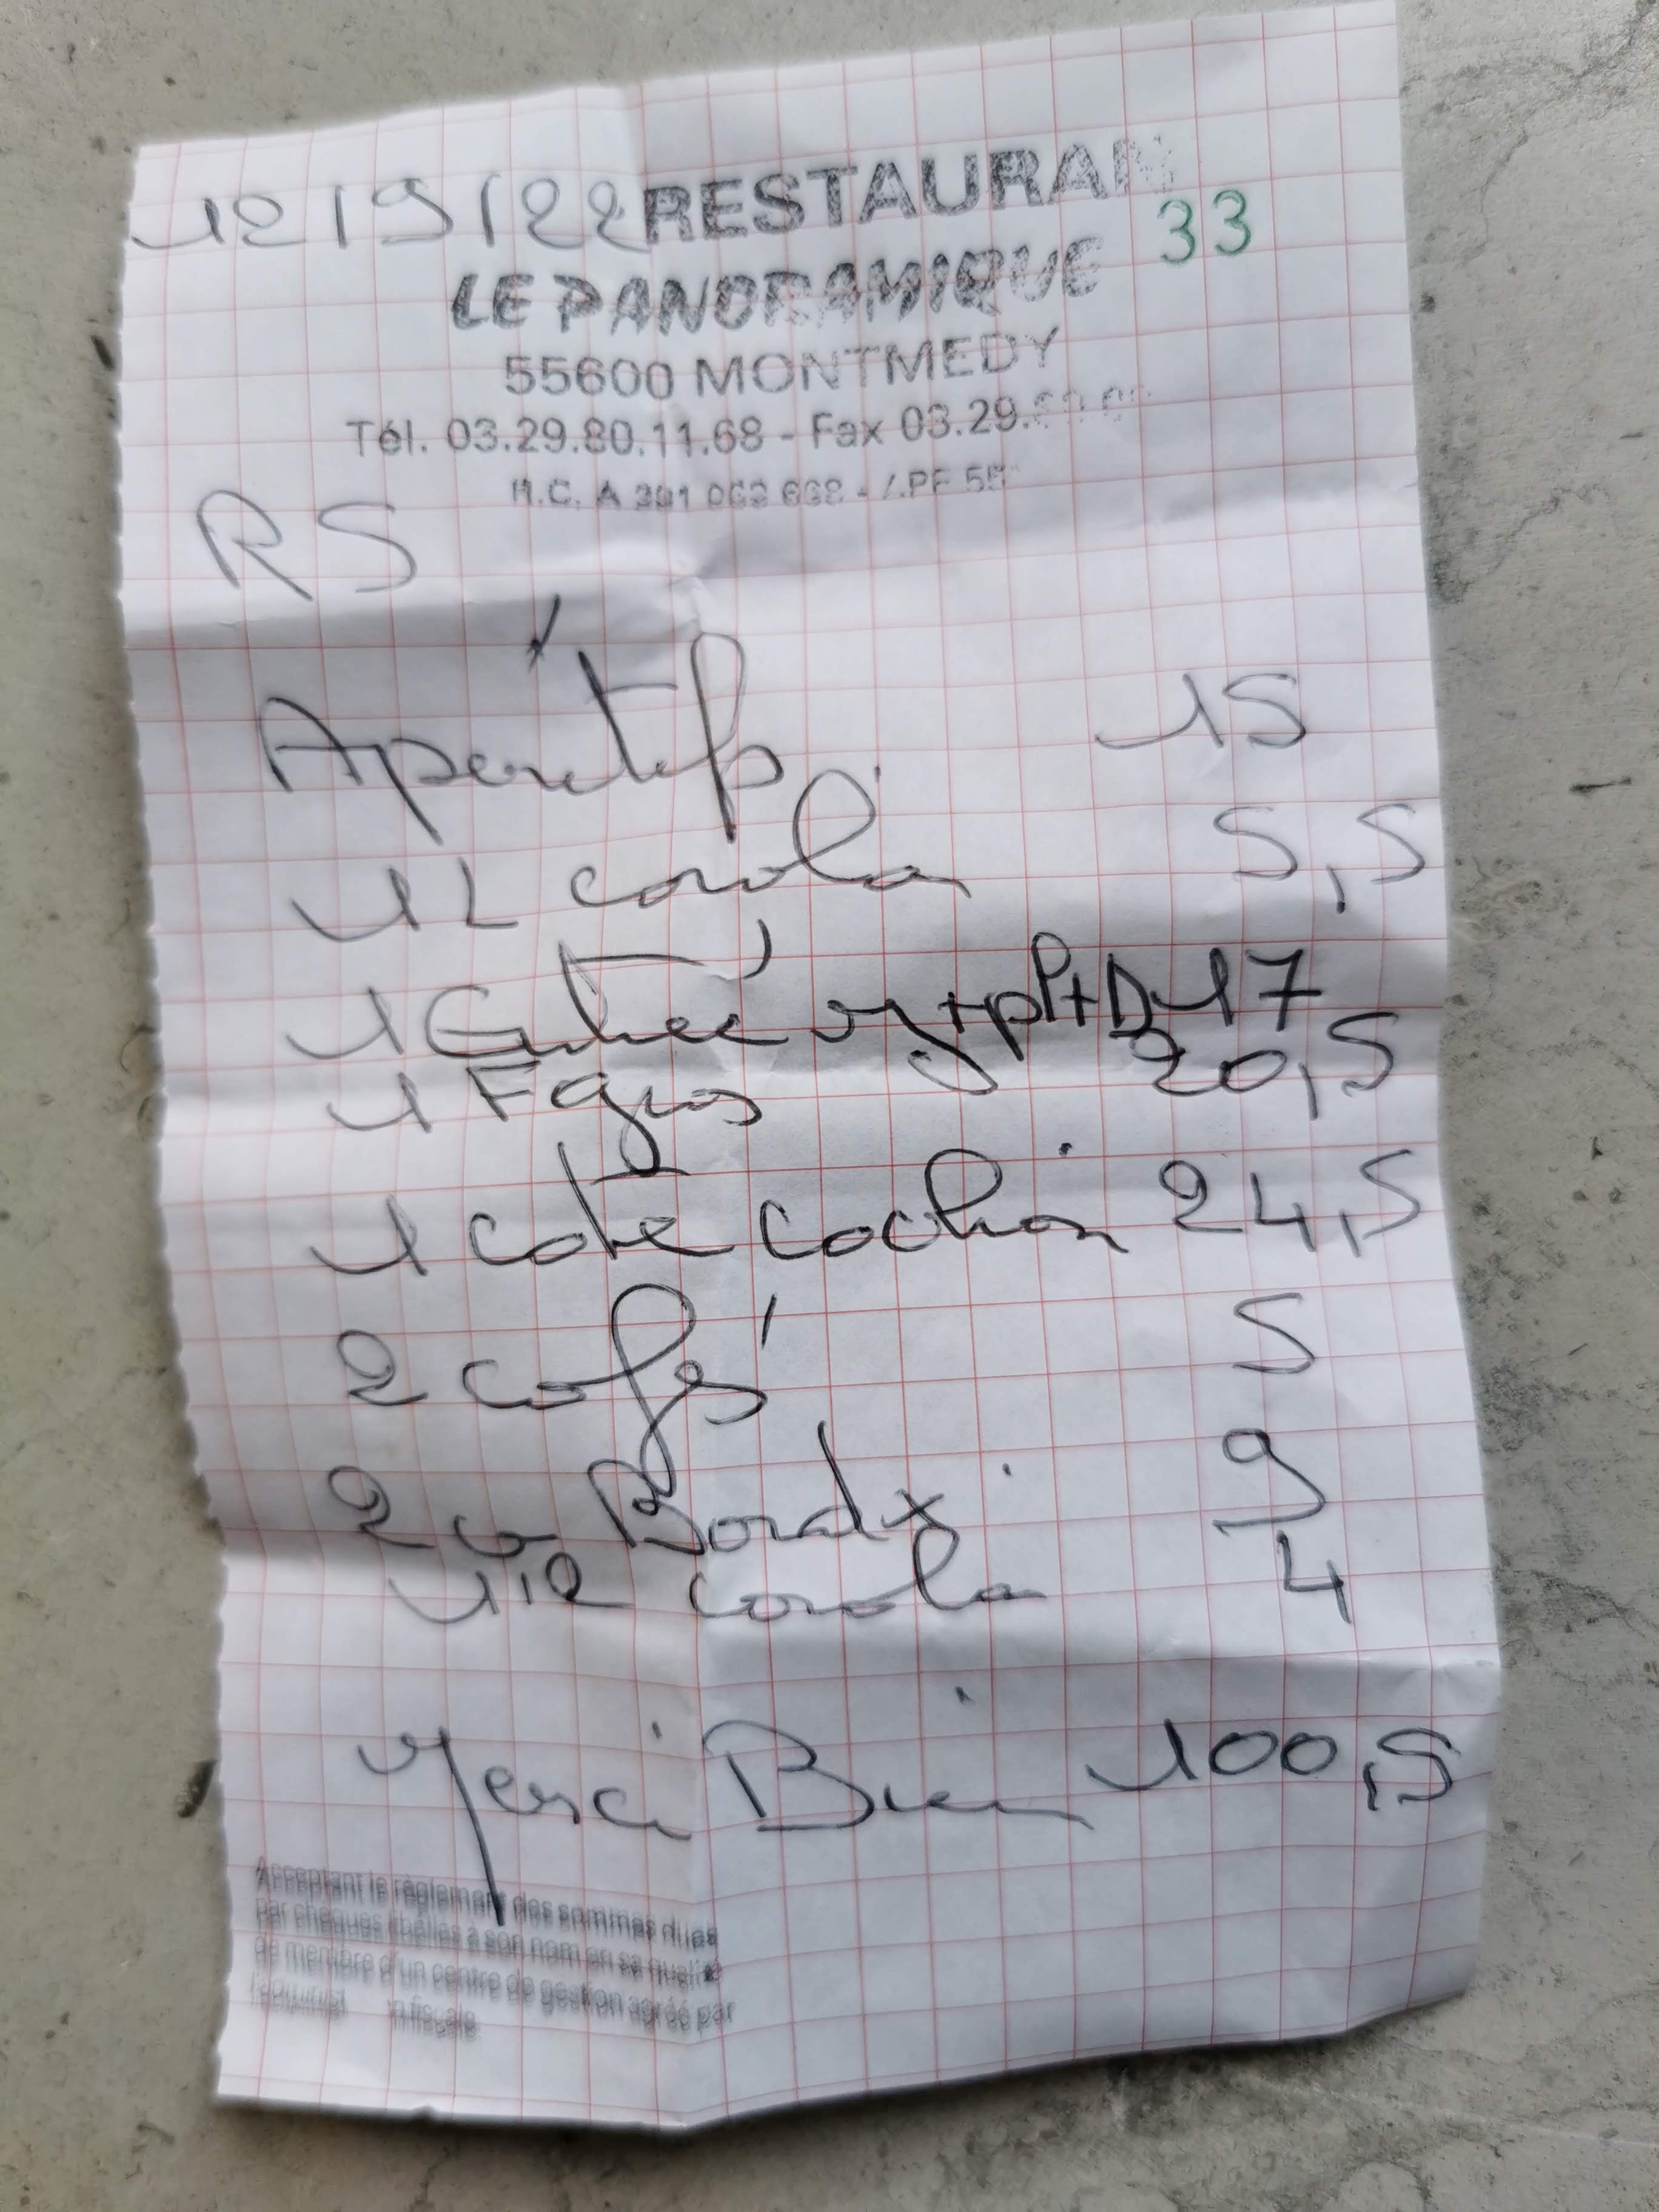 12/9/22 RESTAURAN
33
LE PANORAMIQUE
55600 MONTMEDY
Tél. 03.29.80.11.68 - Fax 03.29.
R.C. A
RS
Apéritifs 15
1L corola 5,5
1 Entrée +plt+D 17
1 20,5
1 cote cochon 24,5
2 cafés 5
2 v Bordx 9
1/2 corola 4
Merci Bien 100,5
Acceptant le règlement des sommes dues
par chèques libellés à son nom en sa qualité
de membre d'un centre de gestion agréé par
fiscale